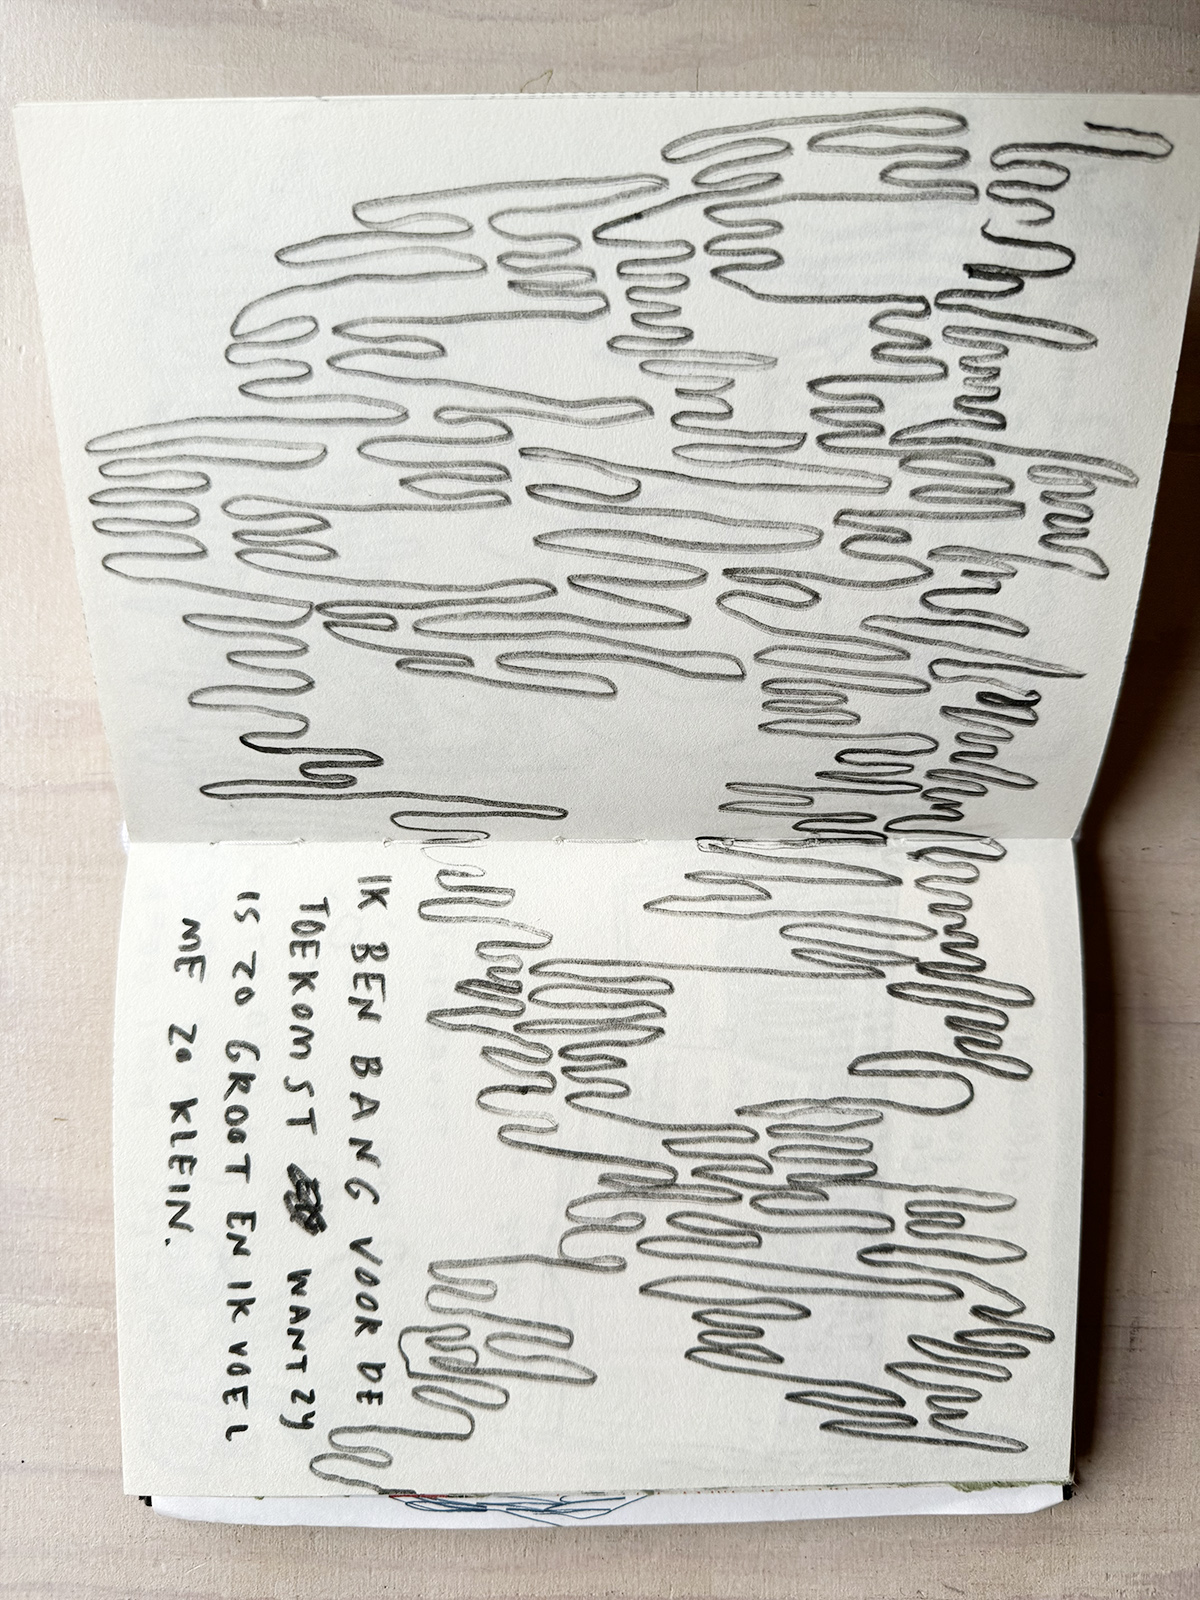 IK BEN BANG VOOR DE
TOEKOMST WANT ZY
IS ZO GROOT EN IK VOEL
ME ZO KLEIN.